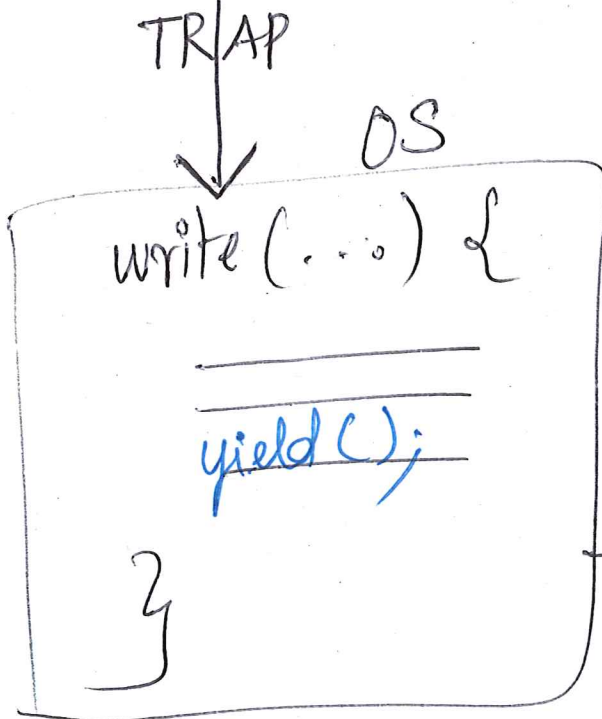 TRAP
OS
write (...) {
yield ();
}